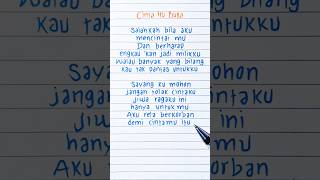 Cinta Itu Buta
Salahkah bila aku
mencintai mu
Dan berharap
engkau 'kan jadi milikku
Walau banyak yang bilang
kau tak pantas untukku
Sayang ku mohon
jangan tolak cintaku
Jiwa ragaku ini
hanya untuk mu
Aku rela berkorban
demi cintamu itu